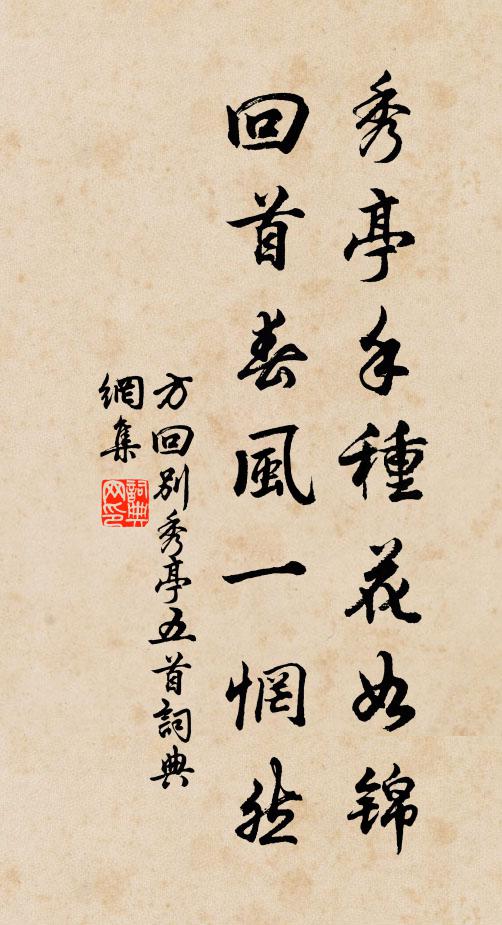 秀亭手種花如錦
回首春風一惘然
方回別秀亭五首詞典
網集
詞典
网印